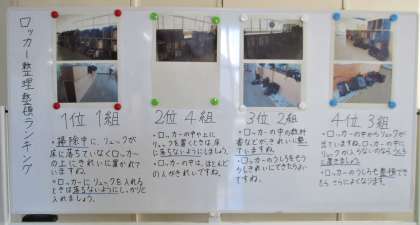 ロッカー整理整頓ランキング
1位 1組
・掃除中に、リュックが
床に落ちていなくロッカー
の上にきれいに置かれて
いますね。
・ロッカーにリュックを入れる
ときは落ちないようにしっかりと
入れましょう。
2位 4組
・ロッカーの中や上に
リュックを置くときは床
に落ちないようにしましょう。
・ロッカーの中は、ほとんど
の人がきれいですね。
3位 2組
・ロッカーの中の教科
書などがきれいに整っ
ていますね。
・ロッカーのうしろをもう
少しきれいにできたらよ
いですね。
4位 3組
・ロッカーの中からリュックが
出ています。ロッカーの中に
リュックが入らないのなら
に置きましょう
・ロッカーのうしろも整頓でき
たら さらによくなります。